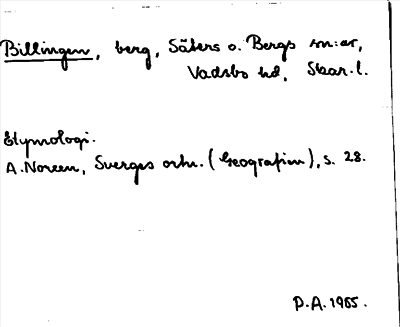 Billingen, berg, Säters o. Bergs sn:ar,
Vadsbo hd, Skar. l.
Etymologi.
A. Noreen, Sverges ortn. (Geografien), s. 28.
P.A. 1965.